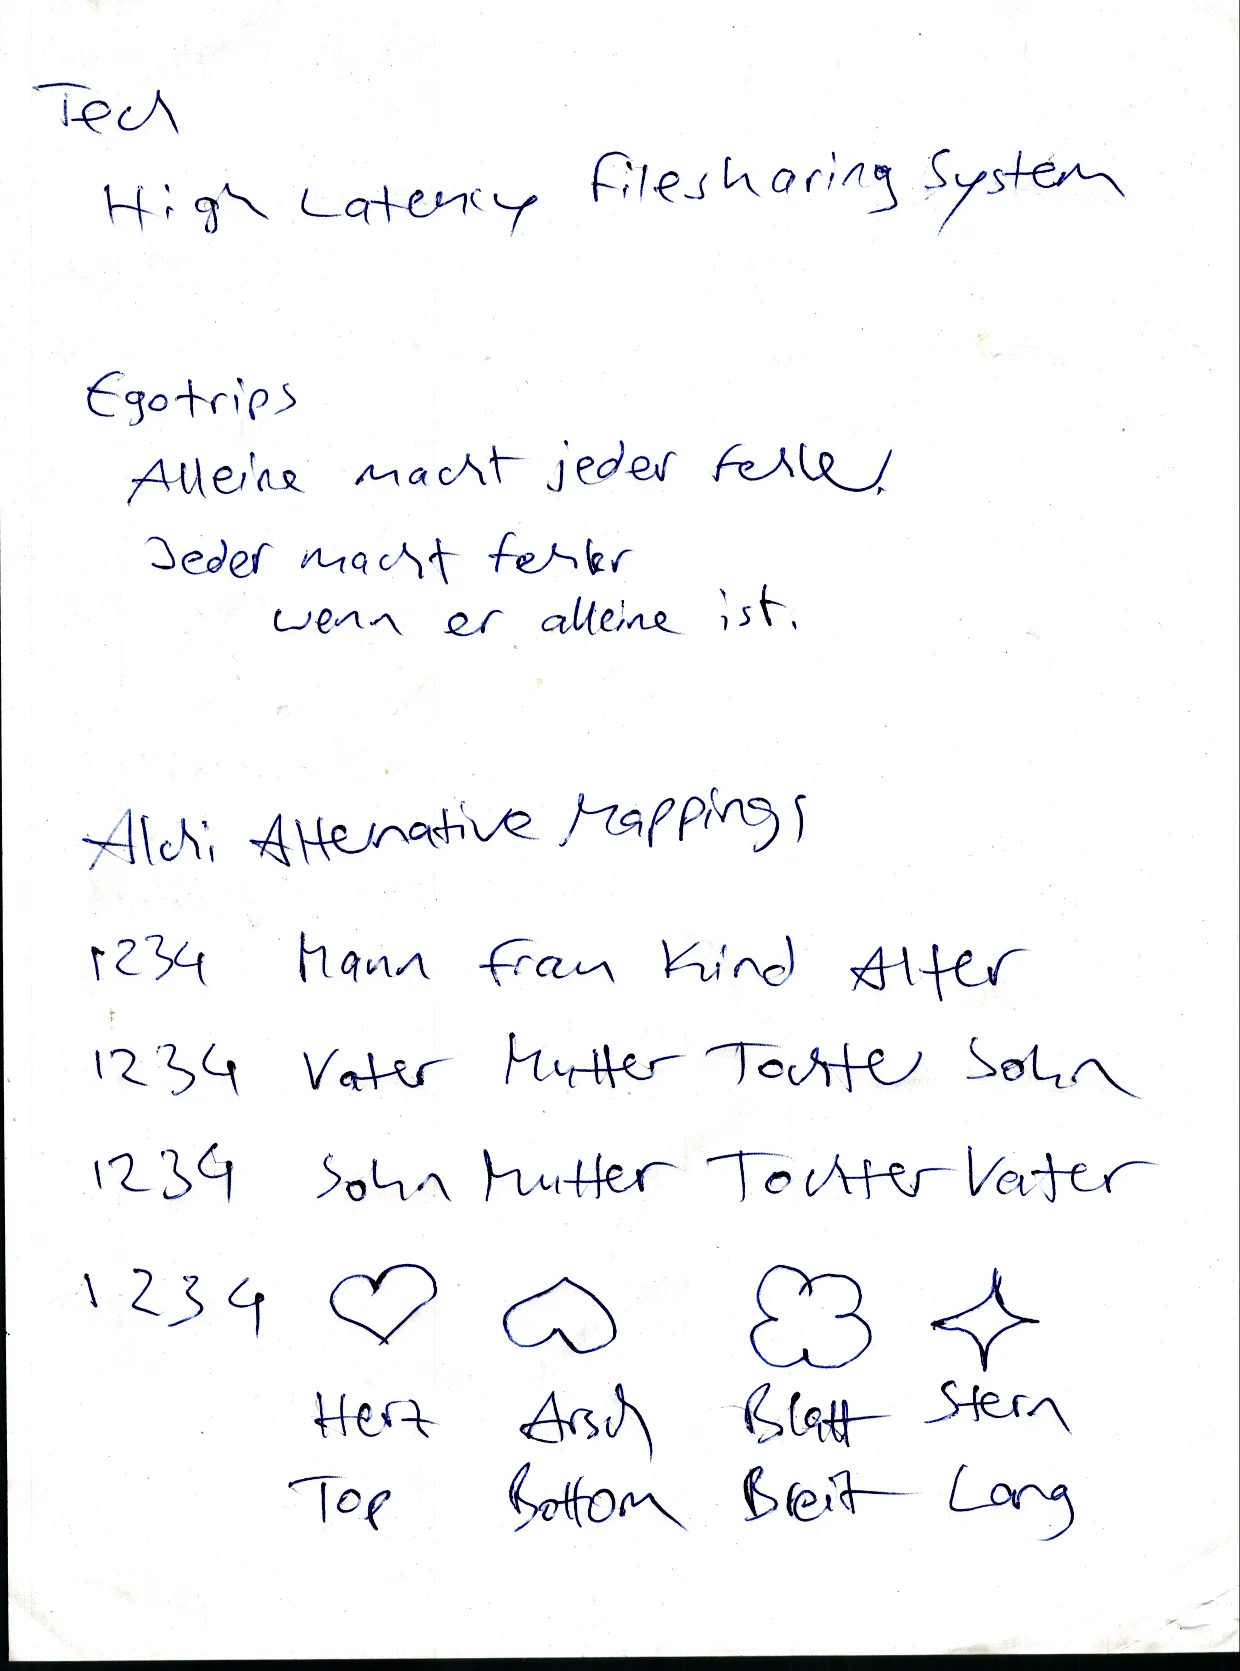 Tech
High Latency Filesharing System
Egotrips
Alleine macht jeder Fehler
Jeder macht fehler
wenn er alleine ist.
Alchi Alternative Mappings
1234 Mann Frau Kind Alter
1234 Vater Mutter Tochter Sohn
1234 Sohn Mutter Tochter Vater
1234
Herz Arsch Blatt Stern
Top Bottom Breit Lang